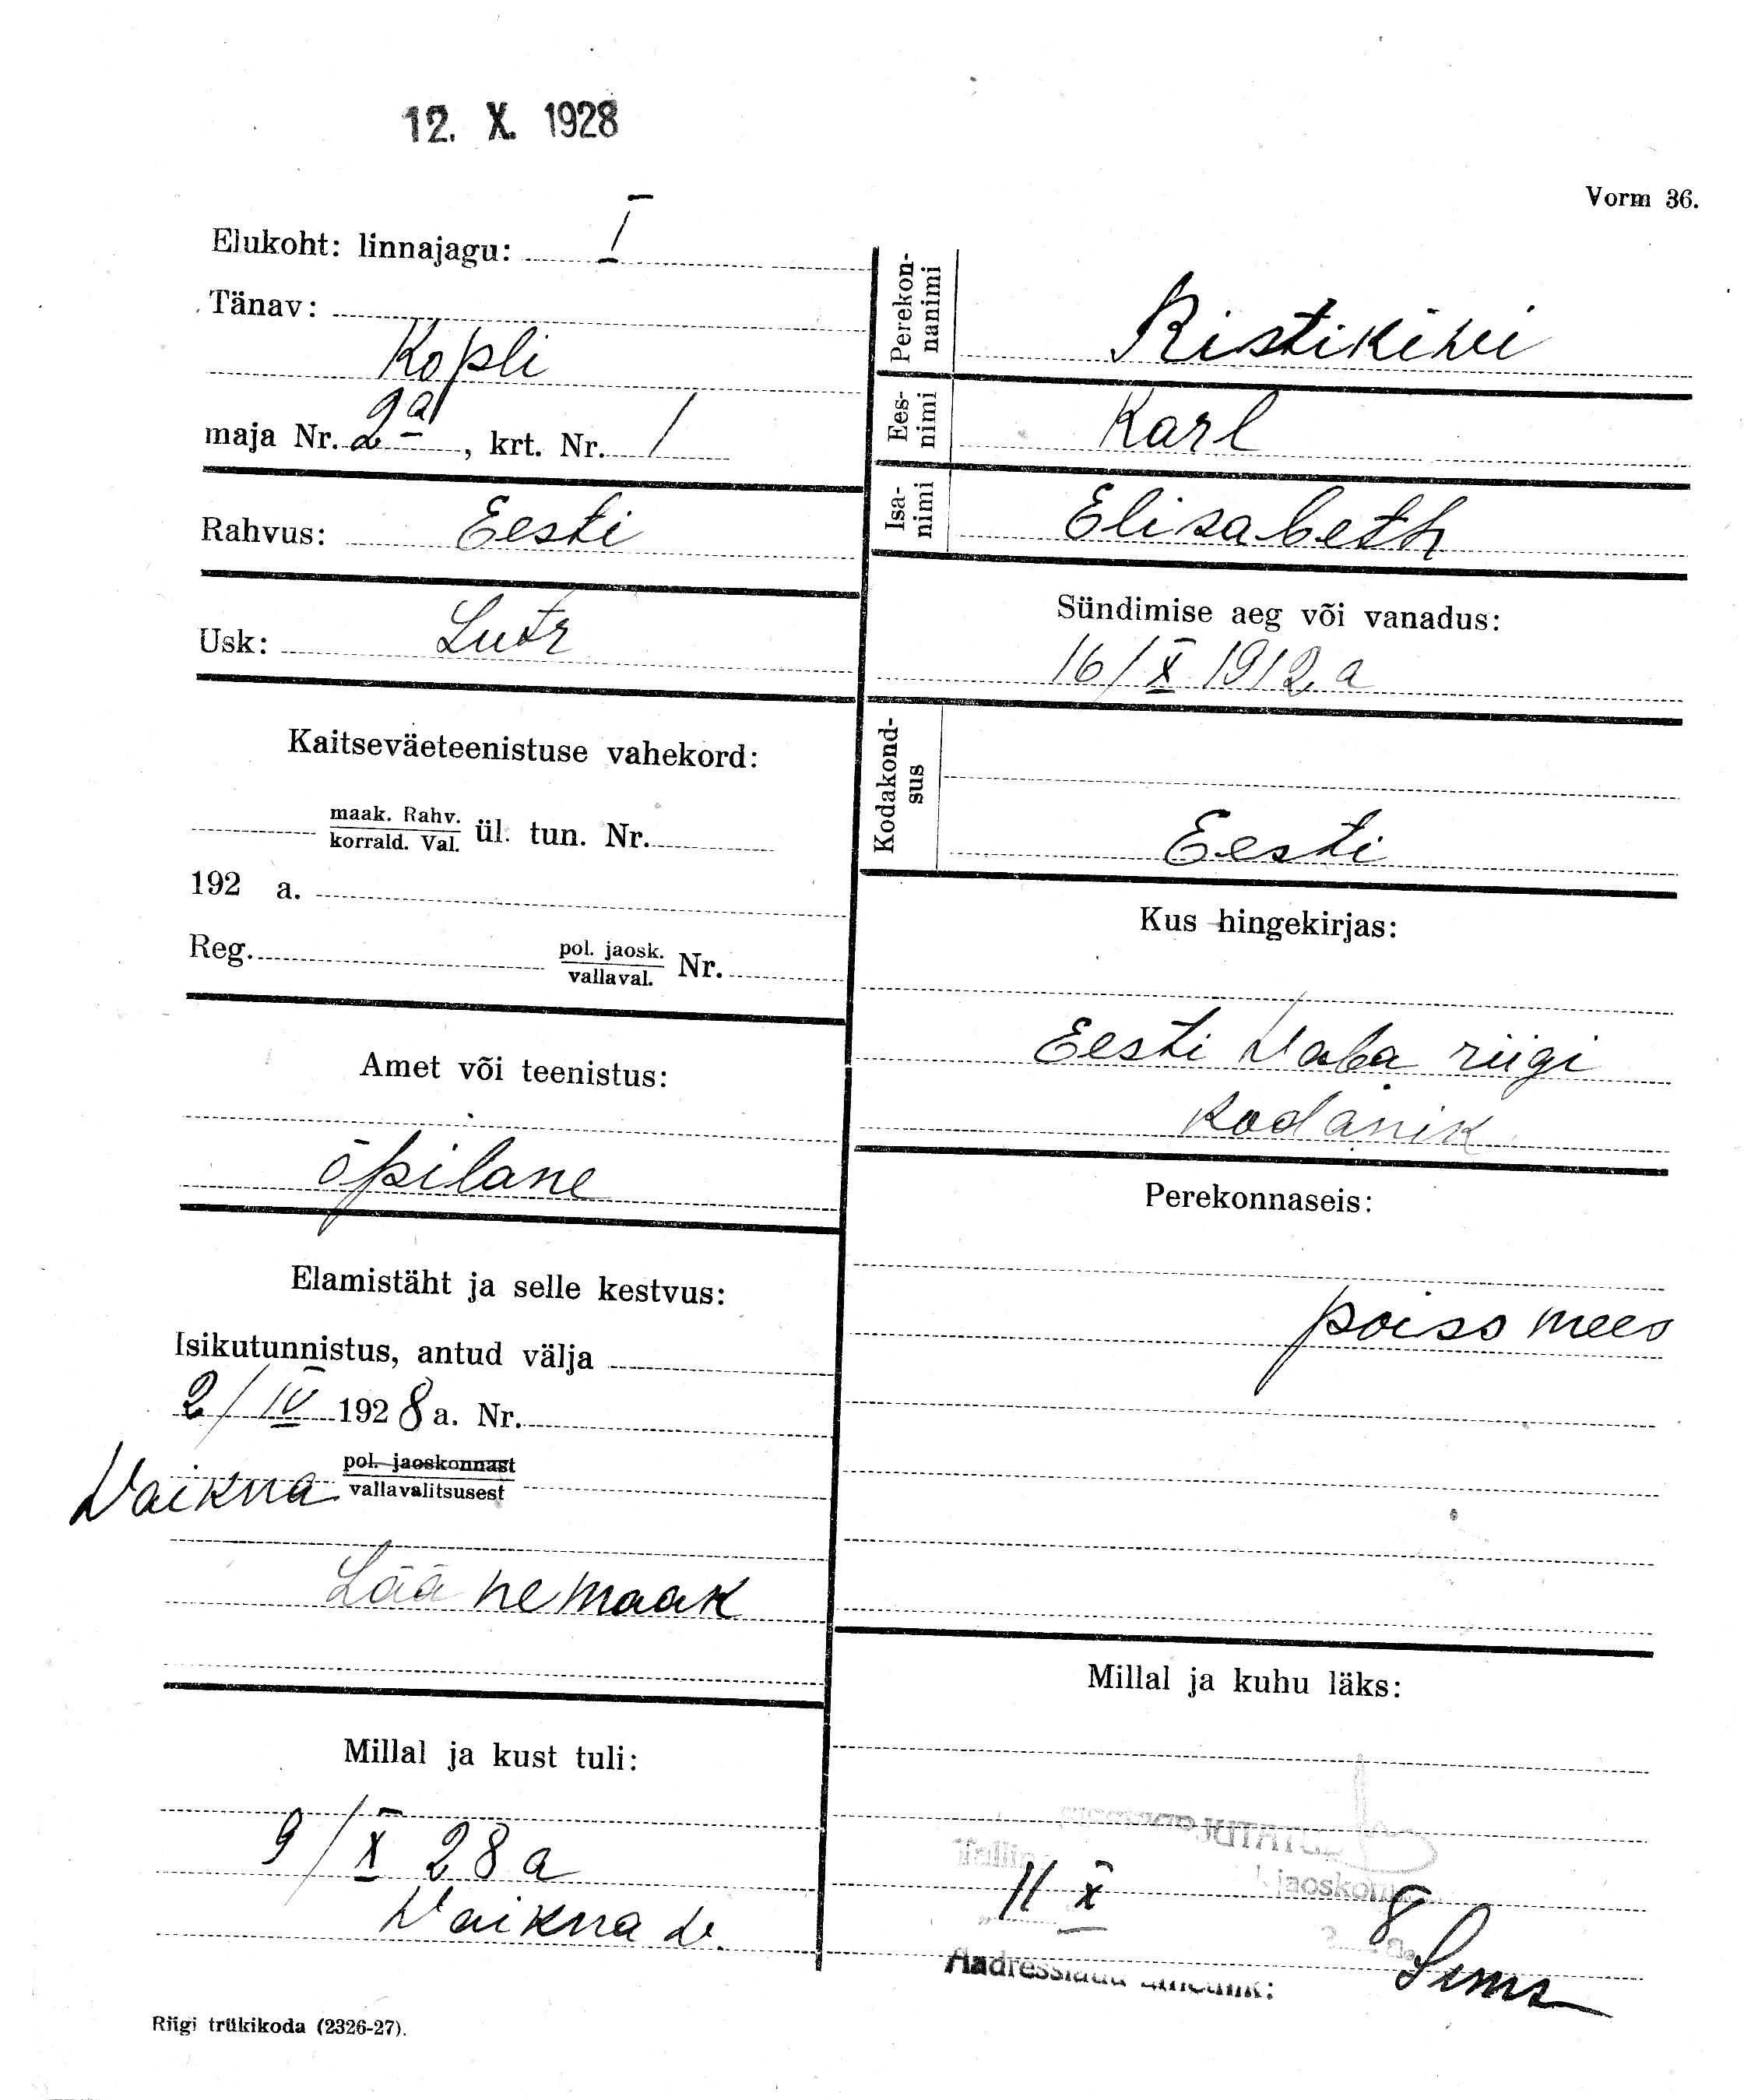 12. X. 1928
Vorm 36.
Elukoht: linnajagu: I
Tänav:
Kopli
maja Nr. 2a, krt. Nr. 1
Rahvus: Eesti
Usk: Lutr
Kaitseväeteenistuse vahekord:
maak. Rahv.
korrald. Val. ül. tun. Nr.
192 a.
Reg. pol. jaosk.
vallaval. Nr.
Amet või teenistus:
õpilane
Elamistäht ja selle kestvus:
Isikutunnistus, antud välja
2/IV 1928 a. Nr.
pol. jaoskonnast
Vaikna vallavalitsusest
Läänemaak
Millal ja kust tuli:
9/X 28 a
Vaikna v.
Perekon-
nanimi
Ristikivi
Ees-
nimi
Karl
Isa-
nimi
Elisabeth
Sündimise aeg või vanadus:
16/X 1912 a
Kodakond-
sus
Eesti
Kus hingekirjas:
Eesti Vaba riigi
kodanik
Perekonnaseis:
poiss mees
Millal ja kuhu läks:
Tallin
jaoskon
11 X 8
Riigi trükikoda (2326-27).